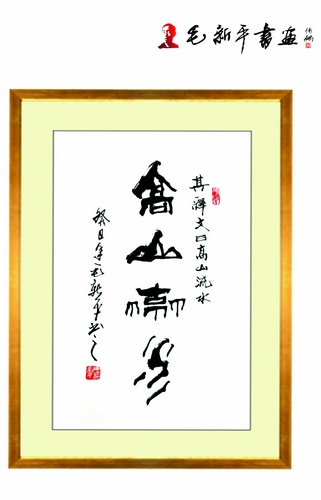 毛新平書画
其释文曰高山流水
高山流水
癸巳年毛新平书之